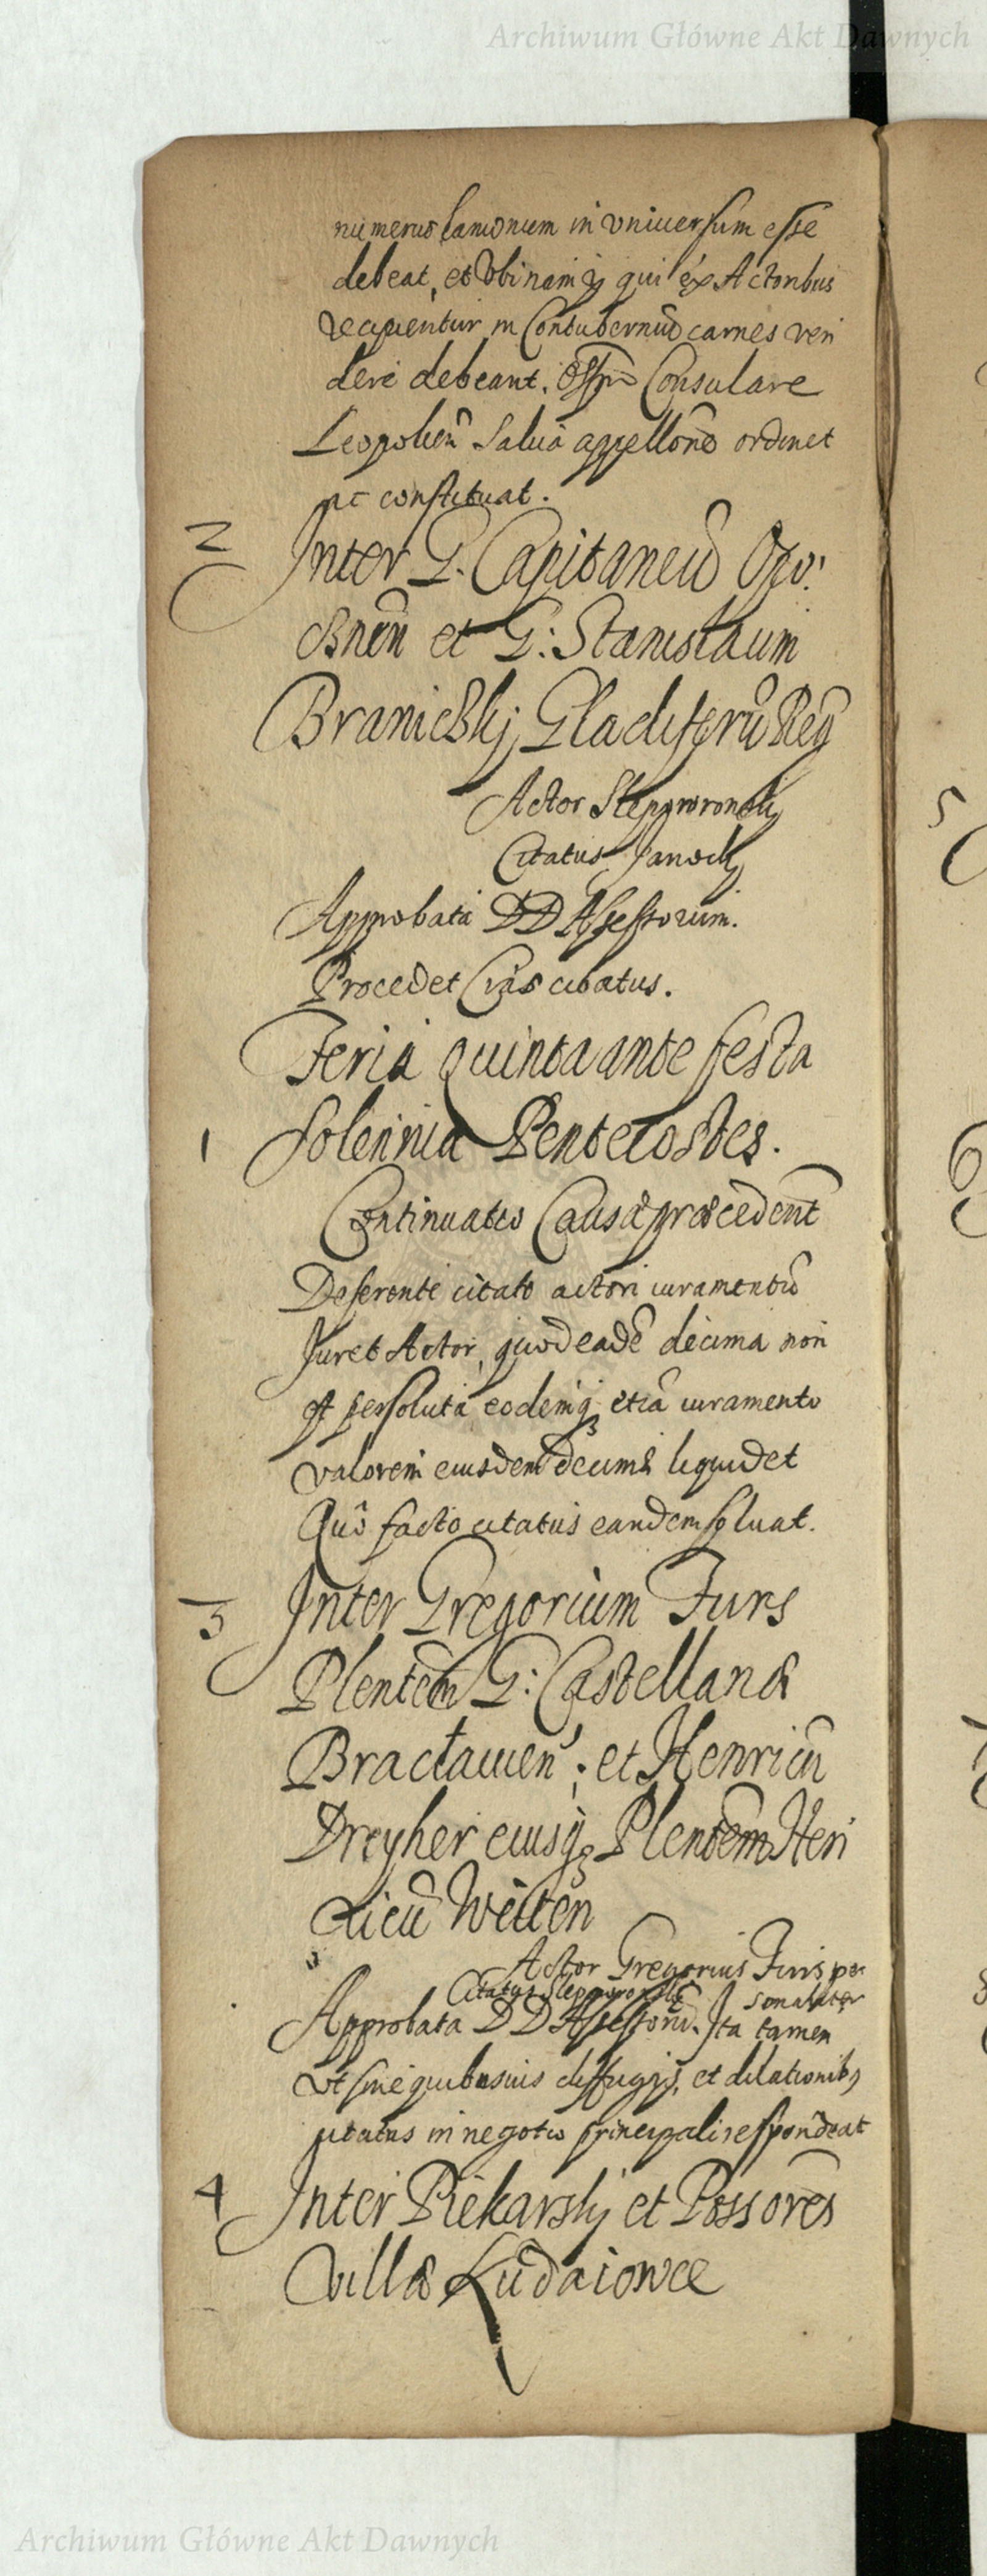 Archiwum Główne Akt Dawnych
numerus lanionum in vniuersum esse
debeat, et vbinam ij qui ex Actoribus
recipientur in Contuberniũ carnes ven
dere debeant. Offm̃ Consulare
Leopolien̄ salua appellōne ordinet
ac constituat.
2 Inter G. Capitaneũ
et G: Stanislaum
Branicskij Gladiferũ Regñ
Actor Slepowronski
Citatus Janocki
Approbata DD Assessorum.
Procedet Cras citatus.
Feria quinta ante festa
1 Solennia Pentecostes.
Continuatio Causæ præcedent̃
Deferente citato actori iuramentũ
Juret Actor, quod eadẽ decima non
est persoluta eodemq3 etiã iuramento
valorem eiusdem decimæ liquidet
Quõ facto citatus eandem soluat.
3 Inter Gregorium Furs
Plentem̃ G: Castellanæ
Bractauien: et Henricũ
Dreyher eiusq3 Plentem̃ Hen
ricũ
Actor Gregorius Furs per
Citatus Slepowronski sonaliter
Approbata DD Assessorũ. Ita tamen
vt sine quibusuis diffugijs, et dilationib9
citatus in negotio principali respondeat
4 Inter Piekarskj et Possores̃
Villæ Ludaiowce
5
6
Archiwum Główne Akt Dawnych